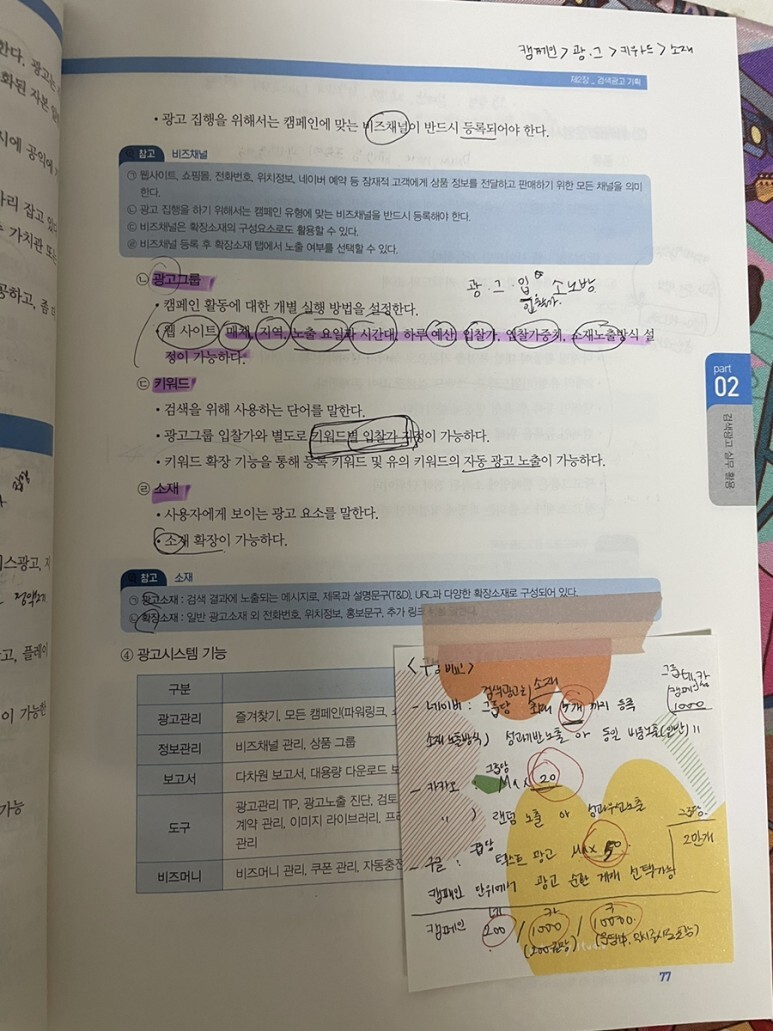 캠페인 > 광.그 > 키워드 > 소재
제2장 _ 검색광고 기획
• 광고 집행을 위해서는 캠페인에 맞는 비즈채널이 반드시 등록되어야 한다.
참고 비즈채널
㉠ 웹사이트, 쇼핑몰, 전화번호, 위치정보, 네이버 예약 등 잠재적 고객에게 상품 정보를 전달하고 판매하기 위한 모든 채널을 의미
한다.
㉡ 광고 집행을 하기 위해서는 캠페인 유형에 맞는 비즈채널을 반드시 등록해야 한다.
㉢ 비즈채널은 확장소재의 구성요소로도 활용할 수 있다.
㉣ 비즈채널 등록 후 확장소재 탭에서 노출 여부를 선택할 수 있다.
㉡ 광고그룹
광.그.입 소노방
입찰가
• 캠페인 활동에 대한 개별 실행 방법을 설정한다.
• 웹 사이트, 매체, 지역, 노출 요일과 시간대, 하루 예산, 입찰가, 입찰가중치, 소재노출방식 설
정이 가능하다.
㉢ 키워드
• 검색을 위해 사용하는 단어를 말한다.
• 광고그룹 입찰가와 별도로 키워드별 입찰가 지정이 가능하다.
• 키워드 확장 기능을 통해 등록 키워드 및 유의 키워드의 자동 광고 노출이 가능하다.
㉣ 소재
• 사용자에게 보이는 광고 요소를 말한다.
• 소재 확장이 가능하다.
part
02
검색광고 실무 활용
참고 소재
㉠ 광고소재 : 검색 결과에 노출되는 메시지로, 제목과 설명문구(T&D), URL과 다양한 확장소재로 구성되어 있다.
㉡ 확장소재 : 일반 광고소재 외 전화번호, 위치정보, 홍보문구, 추가 링크
④ 광고시스템 기능
구분
광고관리 즐겨찾기, 모든 캠페인(파워링크,
정보관리 비즈채널 관리, 상품 그룹
보고서 다차원 보고서, 대용량 다운로드
도구 광고관리 TIP, 광고노출 진단, 검토
계약 관리, 이미지 라이브러리,
관리
비즈머니 비즈머니 관리, 쿠폰 관리, 자동충전
검색광고의 소재
- 네이버 : 그룹당 최대 5개 까지 등록
1000
소재 노출방식) 성과기반노출 or 동일 비중노출
- 카카오 : 그룹당 Max 20
〃 ) 랜덤 노출 or 성과우선노출
그룹당
2만개
- 구글 : 그룹당 텍스트 광고 Max 50
캠페인 단위에서 광고 순환 게재 선택가능
캠페인 네 200 / 카 1000 / 구 10000
77